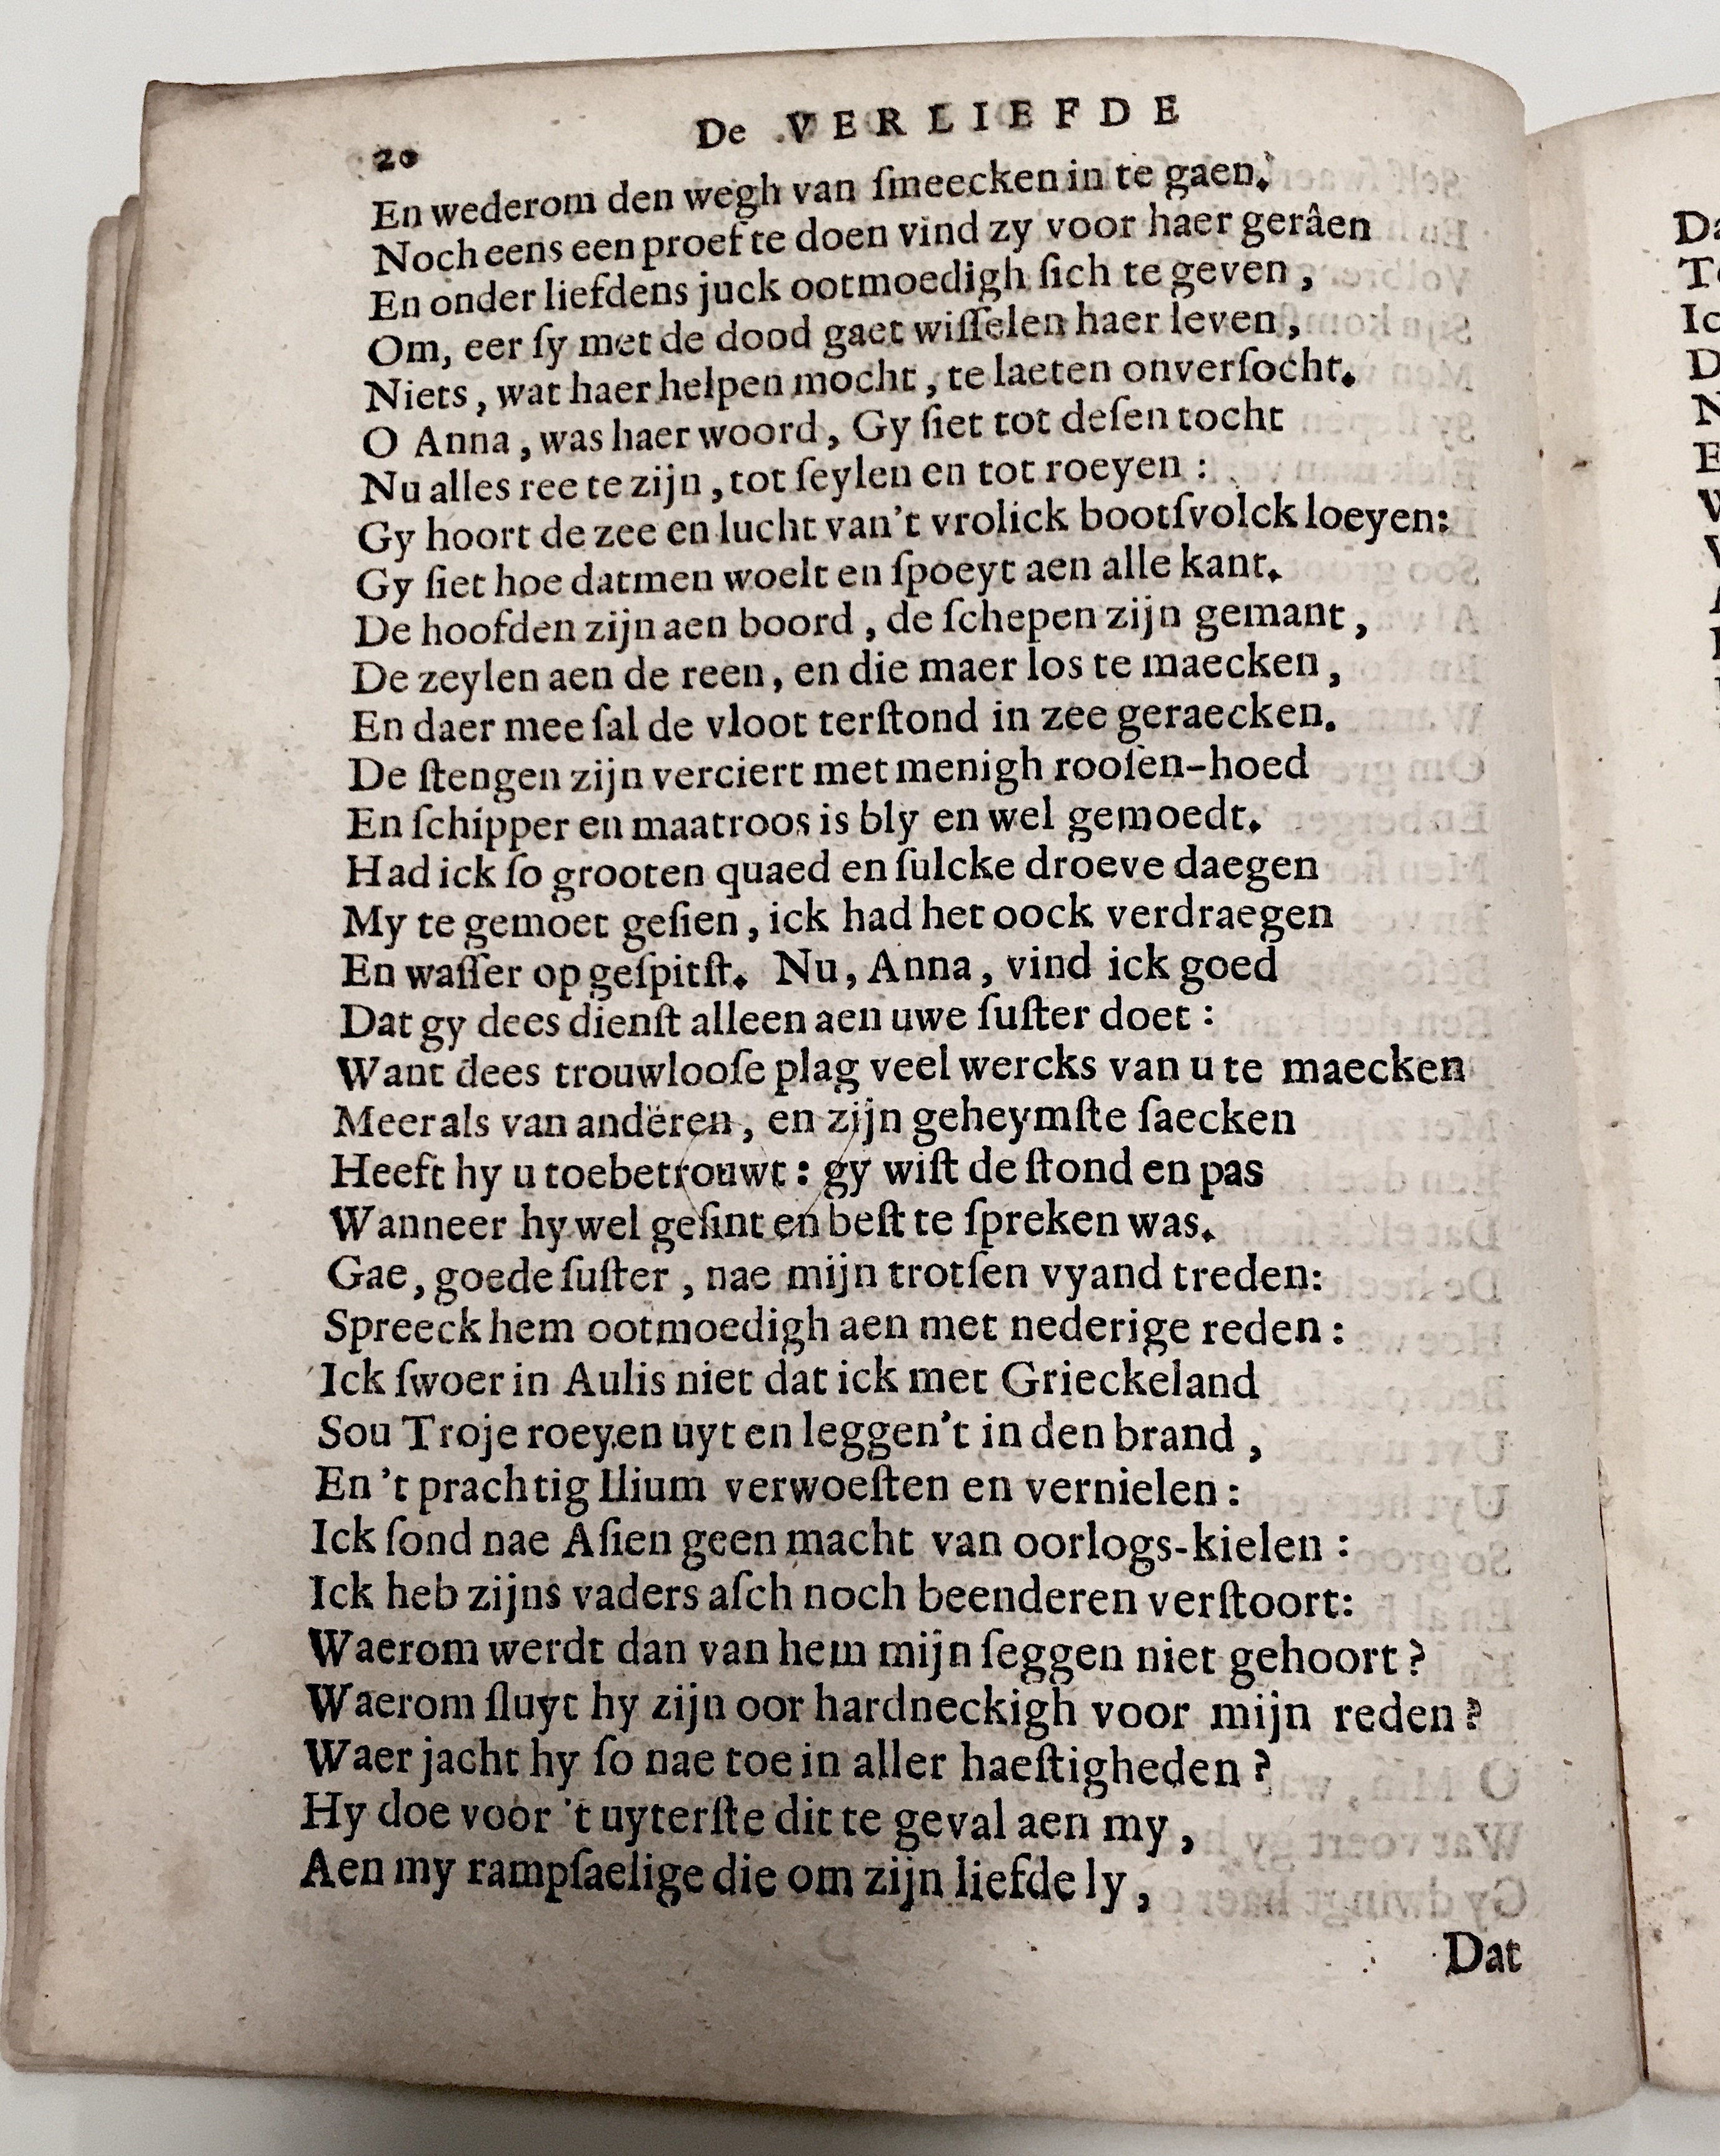 20 De VERLIEFDE
En wederom den wegh van ſmeecken in te gaen.
Noch eens een proef te doen vind zy voor haer gerâen
En onder liefdens juck ootmoedigh ſich te geven,
Om, eer ſy met de dood gaet wiſſelen haer leven,
Niets, wat haer helpen mocht, te laeten onverſocht.
O Anna, was haer woord, Gy ſiet tot deſen tocht
Nu alles ree te zijn, tot ſeylen en tot roeyen:
Gy hoort de zee en lucht van't vrolick bootſvolck loeyen:
Gy ſiet hoe datmen woelt en ſpoeyt aen alle kant.
De hoofden zijn aen boord, de ſchepen zijn gemant,
De zeylen aen de reen, en die maer los te maecken,
En daer mee ſal de vloot terſtond in zee geraecken.
De ſtengen zijn verciert met menigh rooſen-hoed
En ſchipper en maatroos is bly en wel gemoedt.
Had ick ſo grooten quaed en ſulcke droeve daegen
My te gemoet geſien, ick had het oock verdraegen
En waſſer op geſpitſt. Nu, Anna, vind ick goed
Dat gy dees dienſt alleen aen uwe ſuſter doet:
Want dees trouwlooſe plag veel wercks van u te maecken
Meer als van andëren, en zijn geheymſte ſaecken
Heeft hy u toebetrouwt: gy wiſt de ſtond en pas
Wanneer hy wel geſint en beſt te ſpreken was.
Gae, goede ſuſter, nae mijn trotſen vyand treden:
Spreeck hem ootmoedigh aen met nederige reden:
Ick ſwoer in Aulis niet dat ick met Grieckeland
Sou Troje roeyen uyt en leggen't in den brand,
En 't prachtig Ilium verwoeſten en vernielen:
Ick ſond nae Aſien geen macht van oorlogs-kielen:
Ick heb zijns vaders aſch noch beenderen verſtoort:
Waerom werdt dan van hem mijn ſeggen niet gehoort?
Waerom ſluyt hy zijn oor hardneckigh voor mijn reden?
Waer jacht hy ſo nae toe in aller haeſtigheden?
Hy doe voor 't uyterſte dit te geval aen my,
Aen my rampſaelige die om zijn liefde ly,
Dat